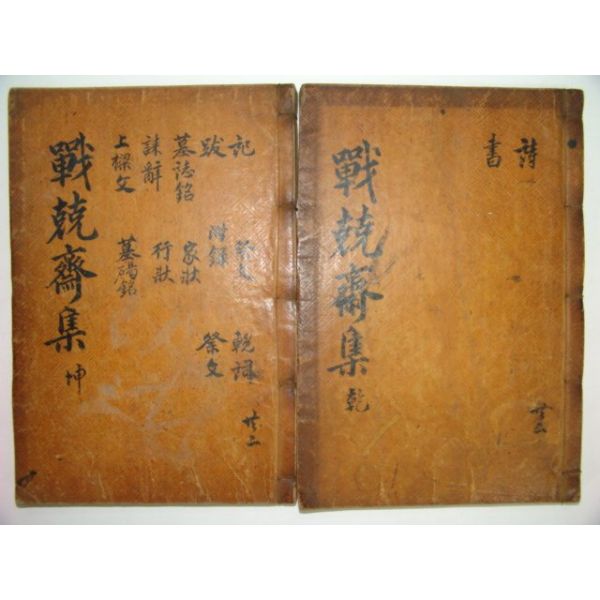 詩
書
戰兢齋集 乾
共二
記 祭文 輓詞
跋 附錄 祭文
墓誌銘 家狀
誄辭 行狀
上樑文 墓碣銘
戰兢齋集 坤
共二